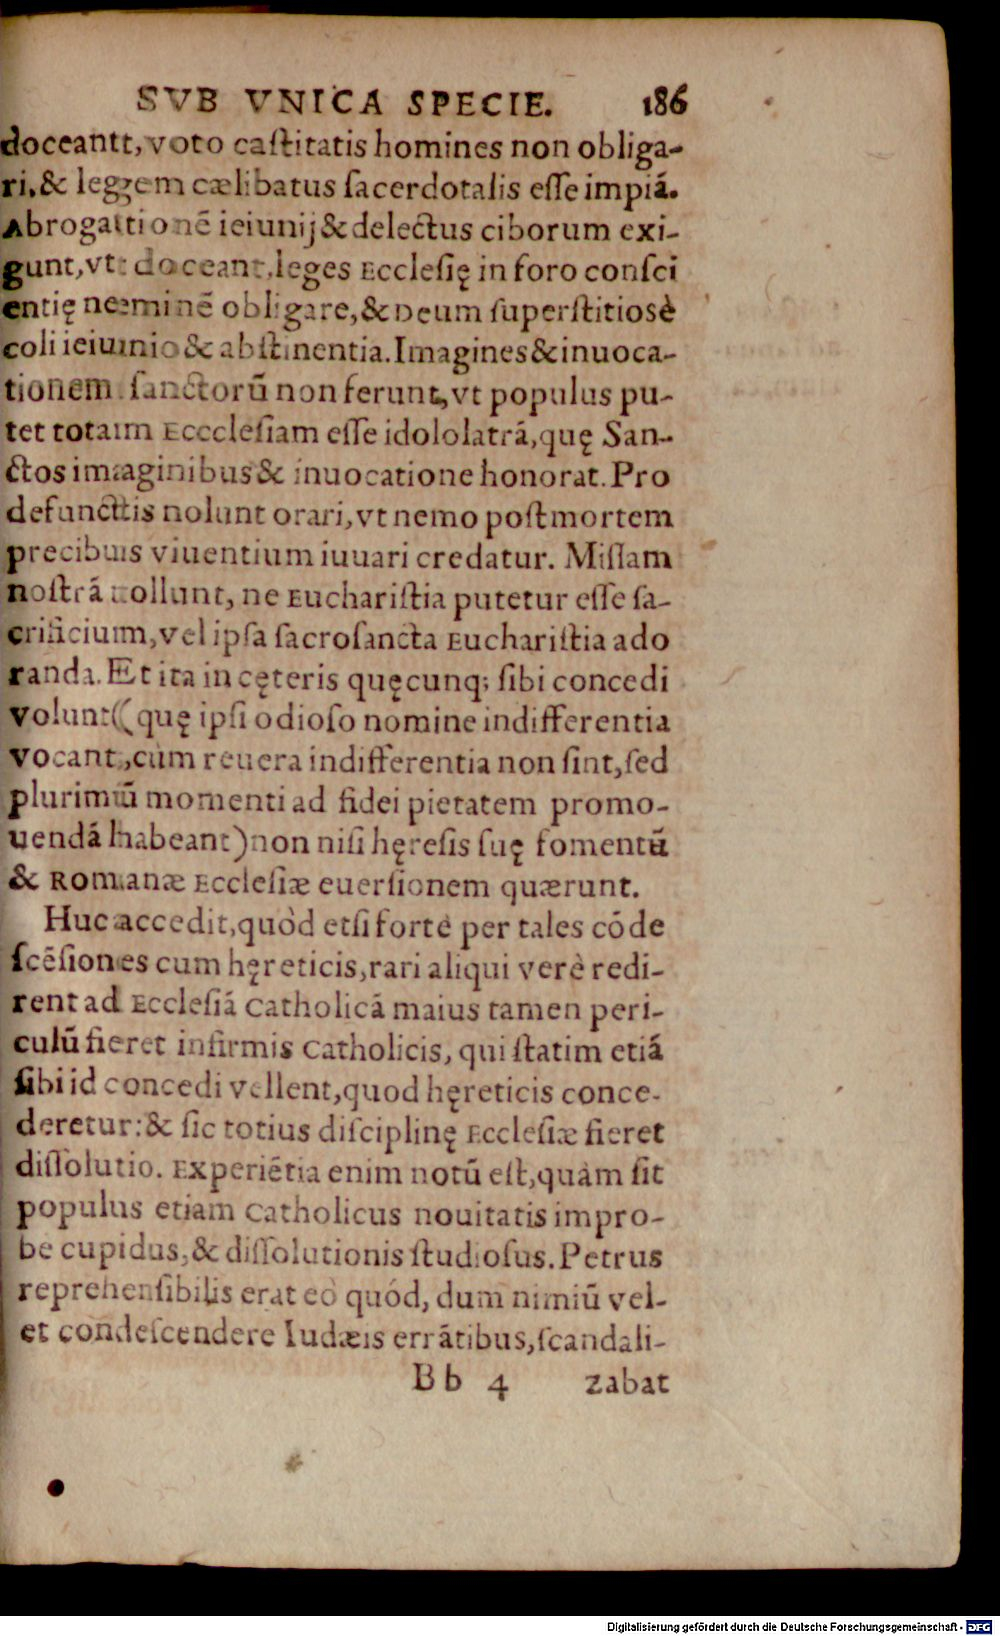 SVB VNICA SPECIE. 186
doceant, voto caſtitatis homines non obliga-
ri, & legem cælibatus ſacerdotalis eſſe impiã.
Abrogationẽ ieiunij & delectus ciborum exi-
gunt, vt doceant, leges Eccleſię in foro conſci
entię neminẽ obligare, & Deum ſuperſtitiosè
coli ieiunio & abſtinentia. Imagines & inuoca-
tionem ſanctorũ non ferunt, vt populus pu-
tet totam Eccleſiam eſſe idololatrã, quę San-
ctos imaginibus & inuocatione honorat. Pro
defunctis nolunt orari, vt nemo poſt mortem
precibus viuentium iuuari credatur. Miſſam
noſtrã tollunt, ne Euchariſtia putetur eſſe ſa-
crificium, vel ipſa ſacroſancta Euchariſtia ado
randa. Et ita in cęteris quęcunq; ſibi concedi
volunt (quę ipſi odioſo nomine indifferentia
vocant, cùm reuera indifferentia non ſint, ſed
plurimũ momenti ad fidei pietatem promo-
uendã habeant) non niſi hęreſis ſuę fomentũ
& Romanæ Eccleſiæ euerſionem quærunt.
Huc accedit, quòd etſi fortè per tales cõde
ſcẽſiones cum hęreticis, rari aliqui verè redi-
rent ad Eccleſiã Catholicã maius tamen peri-
culũ fieret infirmis Catholicis, qui ſtatim etiã
ſibi id concedi vellent, quod hęreticis conce-
deretur: & ſic totius diſciplinę Eccleſiæ fieret
diſſolutio. Experiẽtia enim notũ eſt, quàm ſit
populus etiam Catholicus nouitatis impro-
bè cupidus, & diſſolutionis ſtudioſus. Petrus
reprehenſibilis erat eò quód, dum nimiũ vel-
et condeſcendere Iudæis errãtibus, ſcandali-
Bb 4 zabat
Digitalisierung gefördert durch die Deutsche Forschungsgemeinschaft - DFG